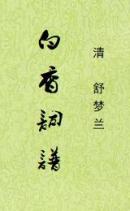 白香詞譜
清 舒梦兰